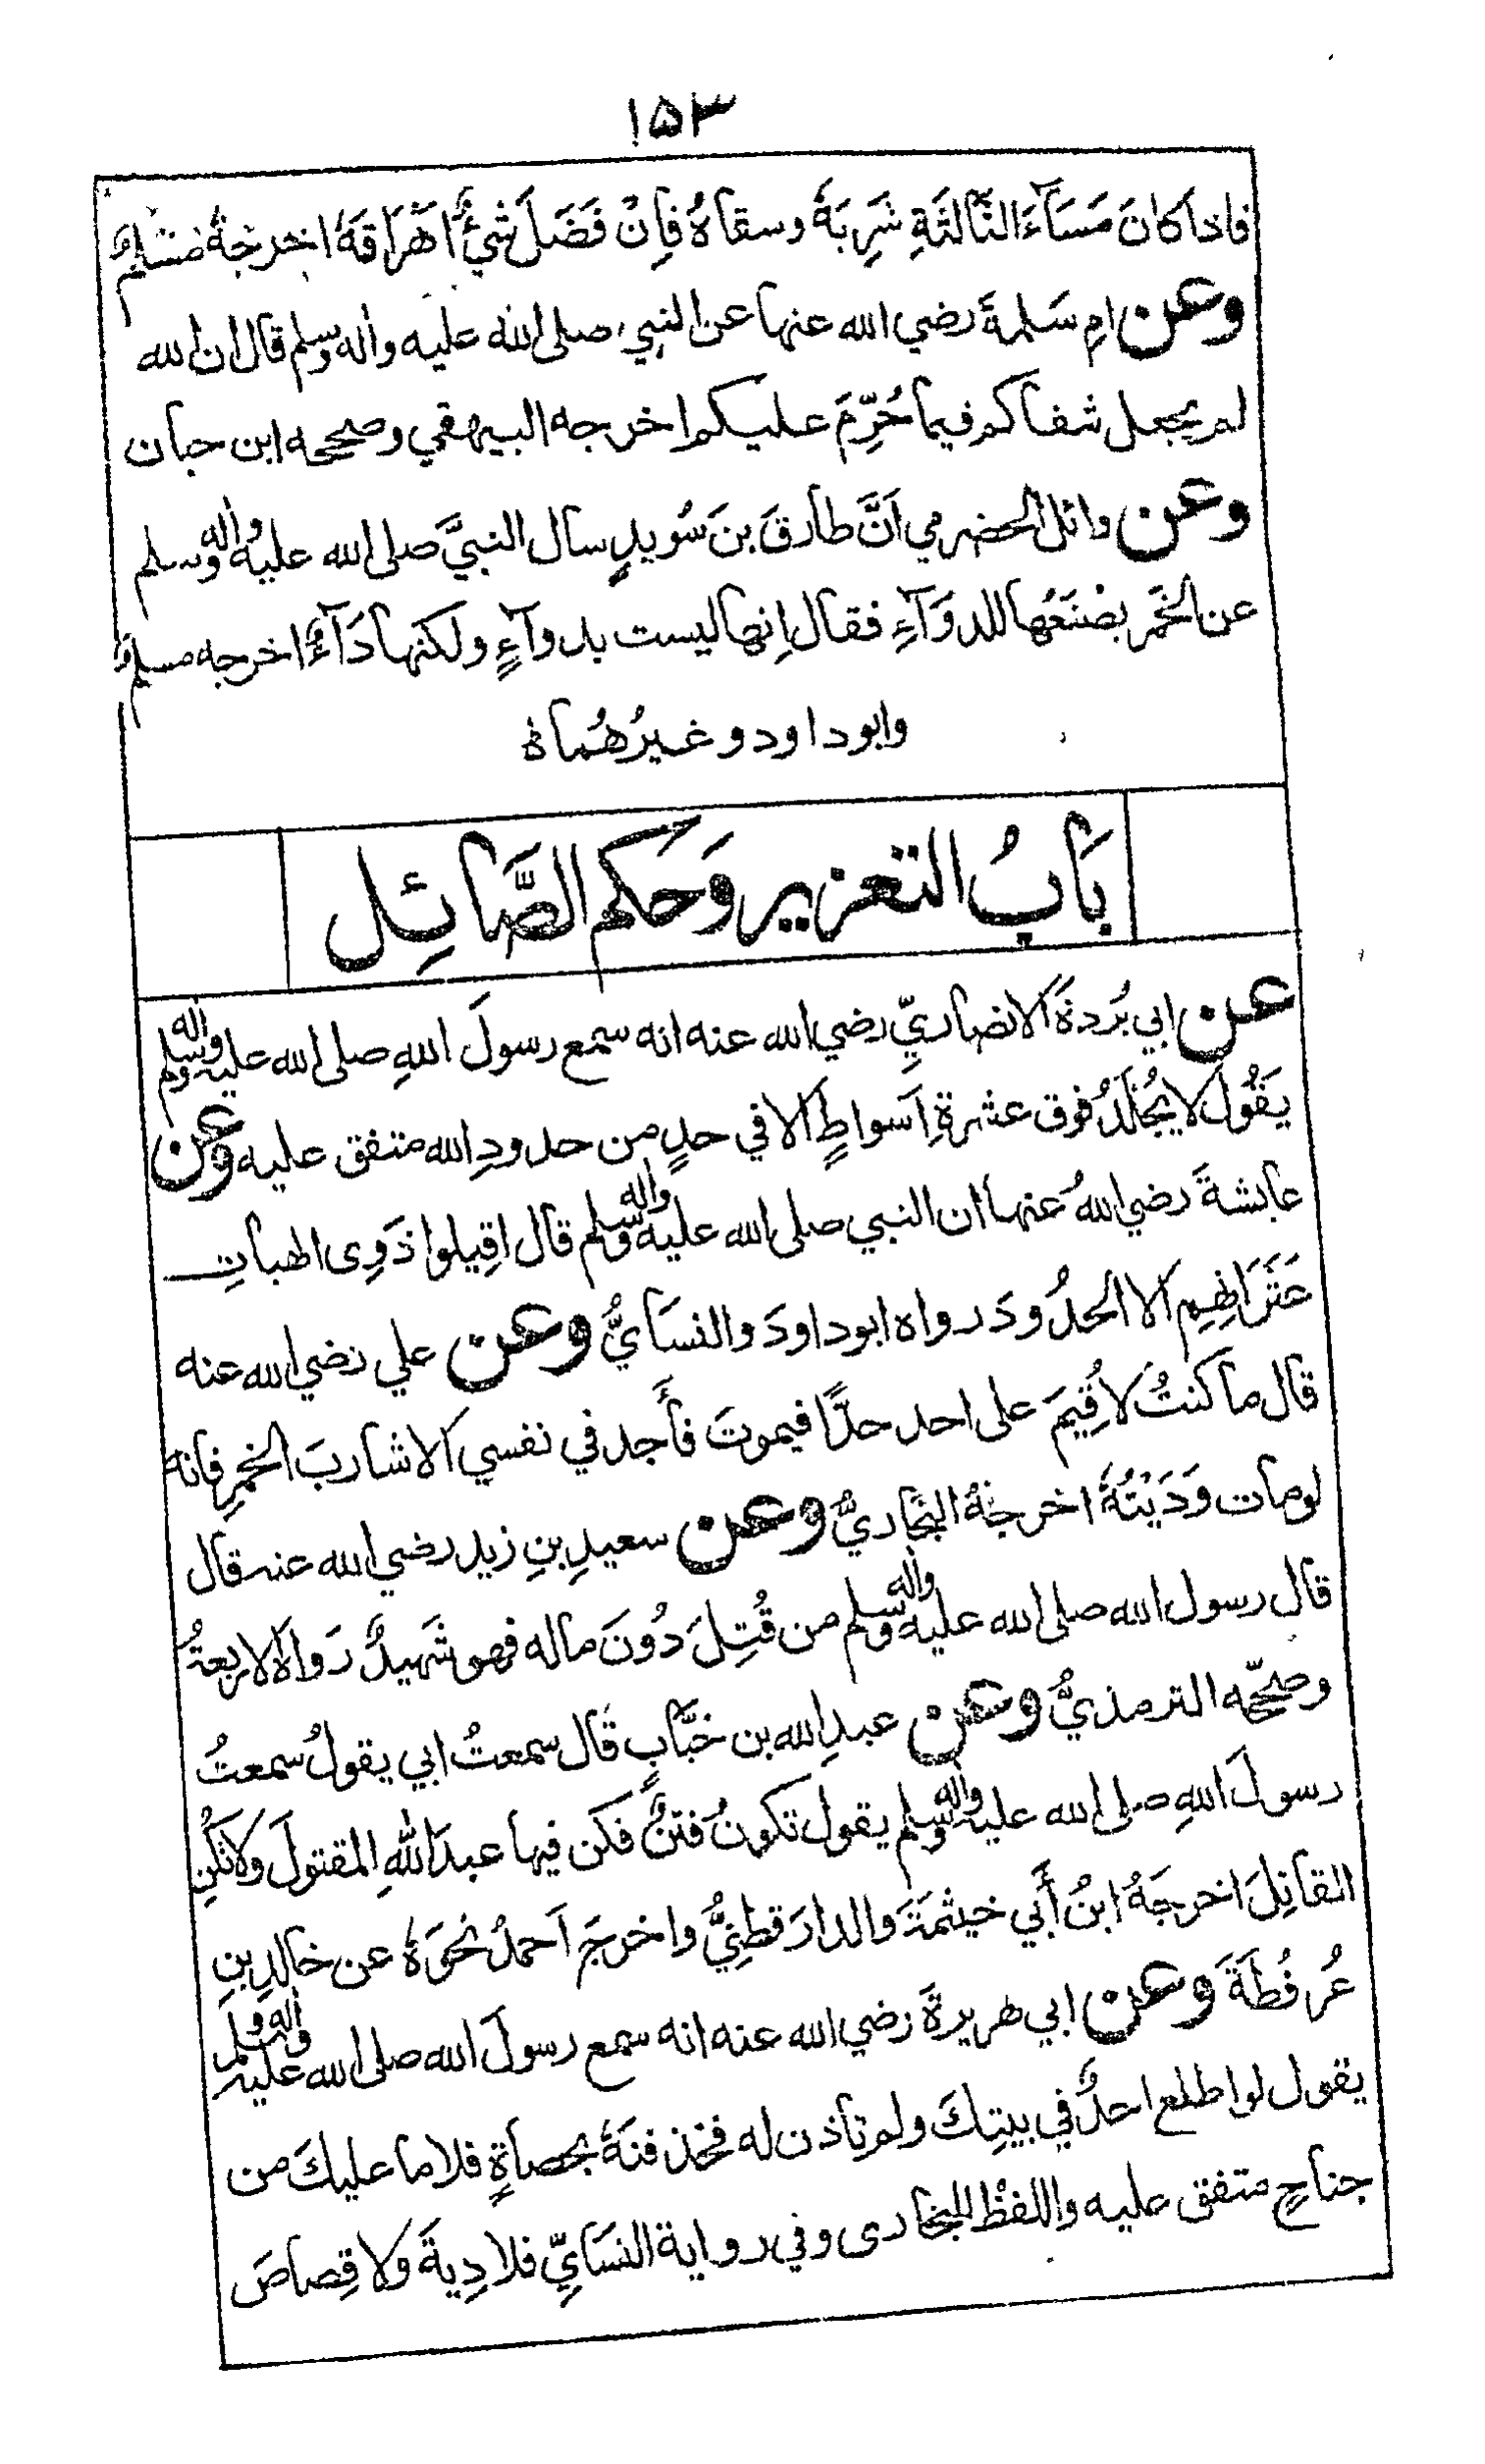 ١٥٣
فاذا كانَ مَسَآءَ الثَّالثَةِ شَرِبَهٗ وسقاهُ فاِنْ فَضَلَ شَيْءٌ اَهْرَاقَهٗ اخرجهٗ مسلمٌ
وعن امِ سَلمةَ رضي الله عنها عن النبي صلى الله عليه واله وسلم قال ان الله
لم يجعل شفاكم فيما حُرِّمَ عليكم اخرجه البيهقي وصححه ابن حبان
وعن وائل الحضرمي اَنَّ طارقَ بنَ سُويدٍ سال النبيَّ صلى الله عليه واله وسلم
عن الخَمر يصْنَعُها للدوَآءِ فقال اِنها ليست بدوآءٍ ولكنها دَآءٌ اخرجه مسلمٌ
وابوداود وغيرُهُماه
بَابُ التعزير وَحكم الصَّائِل
عن ابي بُردةَ الانصاريِّ رضي الله عنه انه سمع رسولَ اللهِ صلى الله عليه واله وسلم
يَقُولُ لا يُجْلَدُ فوق عشرةِ اَسواطٍ الا في حدٍ من حدودِ الله متفق عليه وعن
عايشةَ رضي اللهُ عنها ان النبي صلى الله عليه واله وسلم قال اقِيلوا ذَوِى الهيأتِ
عَثَرَاتِهِم الا الحدُودَ رواه ابوداودَ والنسَايُّ وعن علي رضي الله عنه
قال ما كنتُ لاُقِيمَ على احد حدًّا فيموتَ فأَجد في نفسي الا شاربَ الخمرِ فانه
لومات وَدَيْتُهٗ اخرجهُ البخاريُّ وعن سعيدِ بنِ زيد رضي الله عنه قال
قال رسول الله صلى الله عليه واله وسلم من قُتِلَ دُونَ ماله فهو شَهيدٌ رَواه الاربعةُ
وصحّحه الترمذيُّ وعن عبدِ الله بن خبَّابٍ قَال سمعتُ ابي يقولُ سمعتُ
رسولَ اللهِ صلى الله عليه واله وسلم يقول تكونُ فتنٌ فكن فيها عبدَ اللهِ المقتولَ ولا تكُنِ
القاتِلَ اخرجَهُ ابنُ أَبي خيثمَةَ والدارَقطنِيُّ واخرجَ اَحمدُ نحوَهٗ عن خالدِ بنِ
عُرفُطَةَ وعن ابي هريرةَ رضي الله عنه انه سمع رسولَ الله صلى الله عليه واله وسلم
يقول لو اطلع احدٌ في بيتِكَ ولم تأذن له فخذفتَهٗ بحصاةٍ فلا ما عليكَ من
جناحٍ متفق عليه واللفظْ للبخارى وفي رواية النسَايِّ فلا دِيةَ ولا قِصاصَ